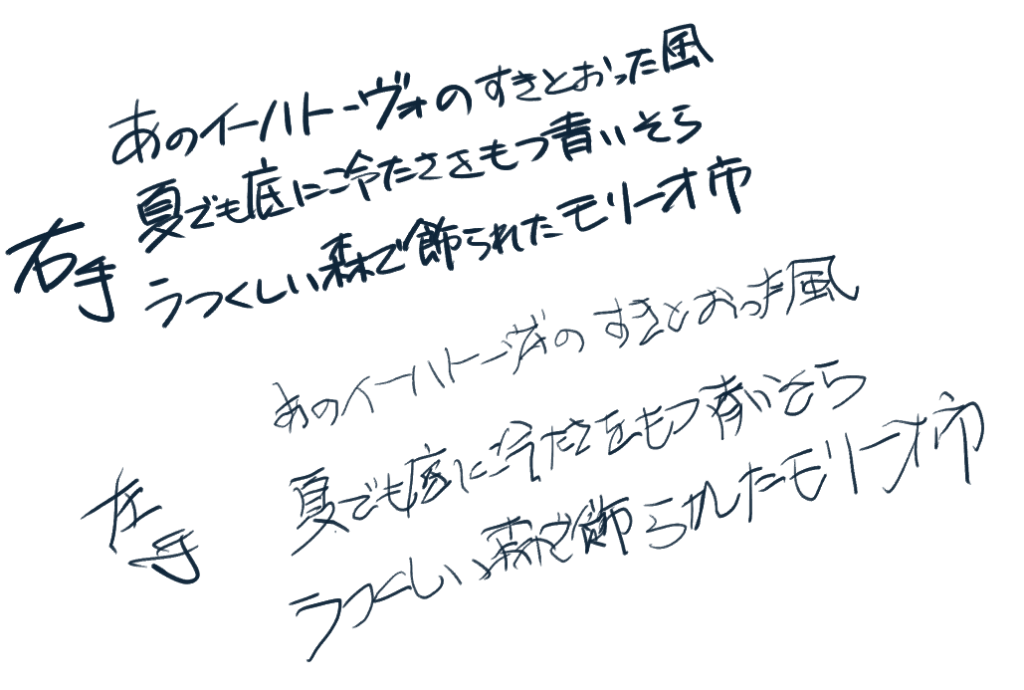 右手
あのイーハトーヴォのすきとおった風
夏でも底に冷たさをもつ青いそら
うつくしい森で飾られたモリーオ市
左手
あのイーハトーヴォのすきとおった風
夏でも底に冷たさをもつ青いそら
うつくしい森で飾られたモリーオ市